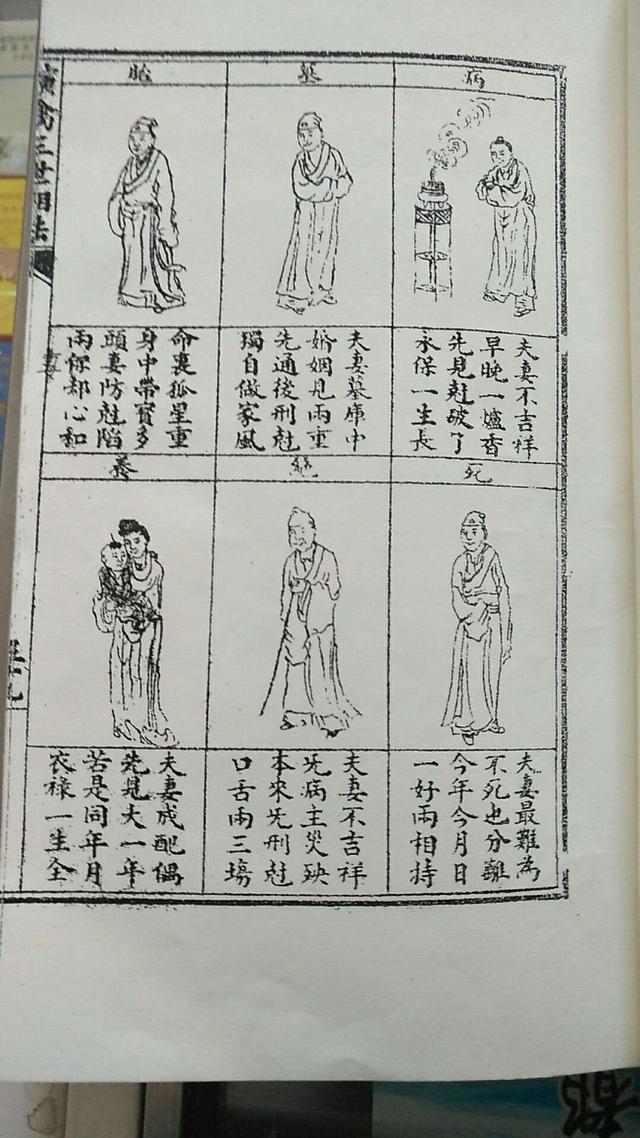 病
夫妻不吉祥
早晚一爐香
先見尅破了
永保一生長
墓
夫妻墓庫中
婚姻見兩重
先通後刑尅
獨自做家風
胎
命裏孤星重
身中帶寶多
頭妻防尅陷
兩保却心和
死
夫妻最難為
不死也分離
今年今月日
一好兩相持
絕
夫妻不吉祥
旡病主災殃
本來旡刑尅
口舌兩三塲
養
夫妻成配偶
先見大一年
苦是同年月
衣祿一生全
演禽三世相法
都